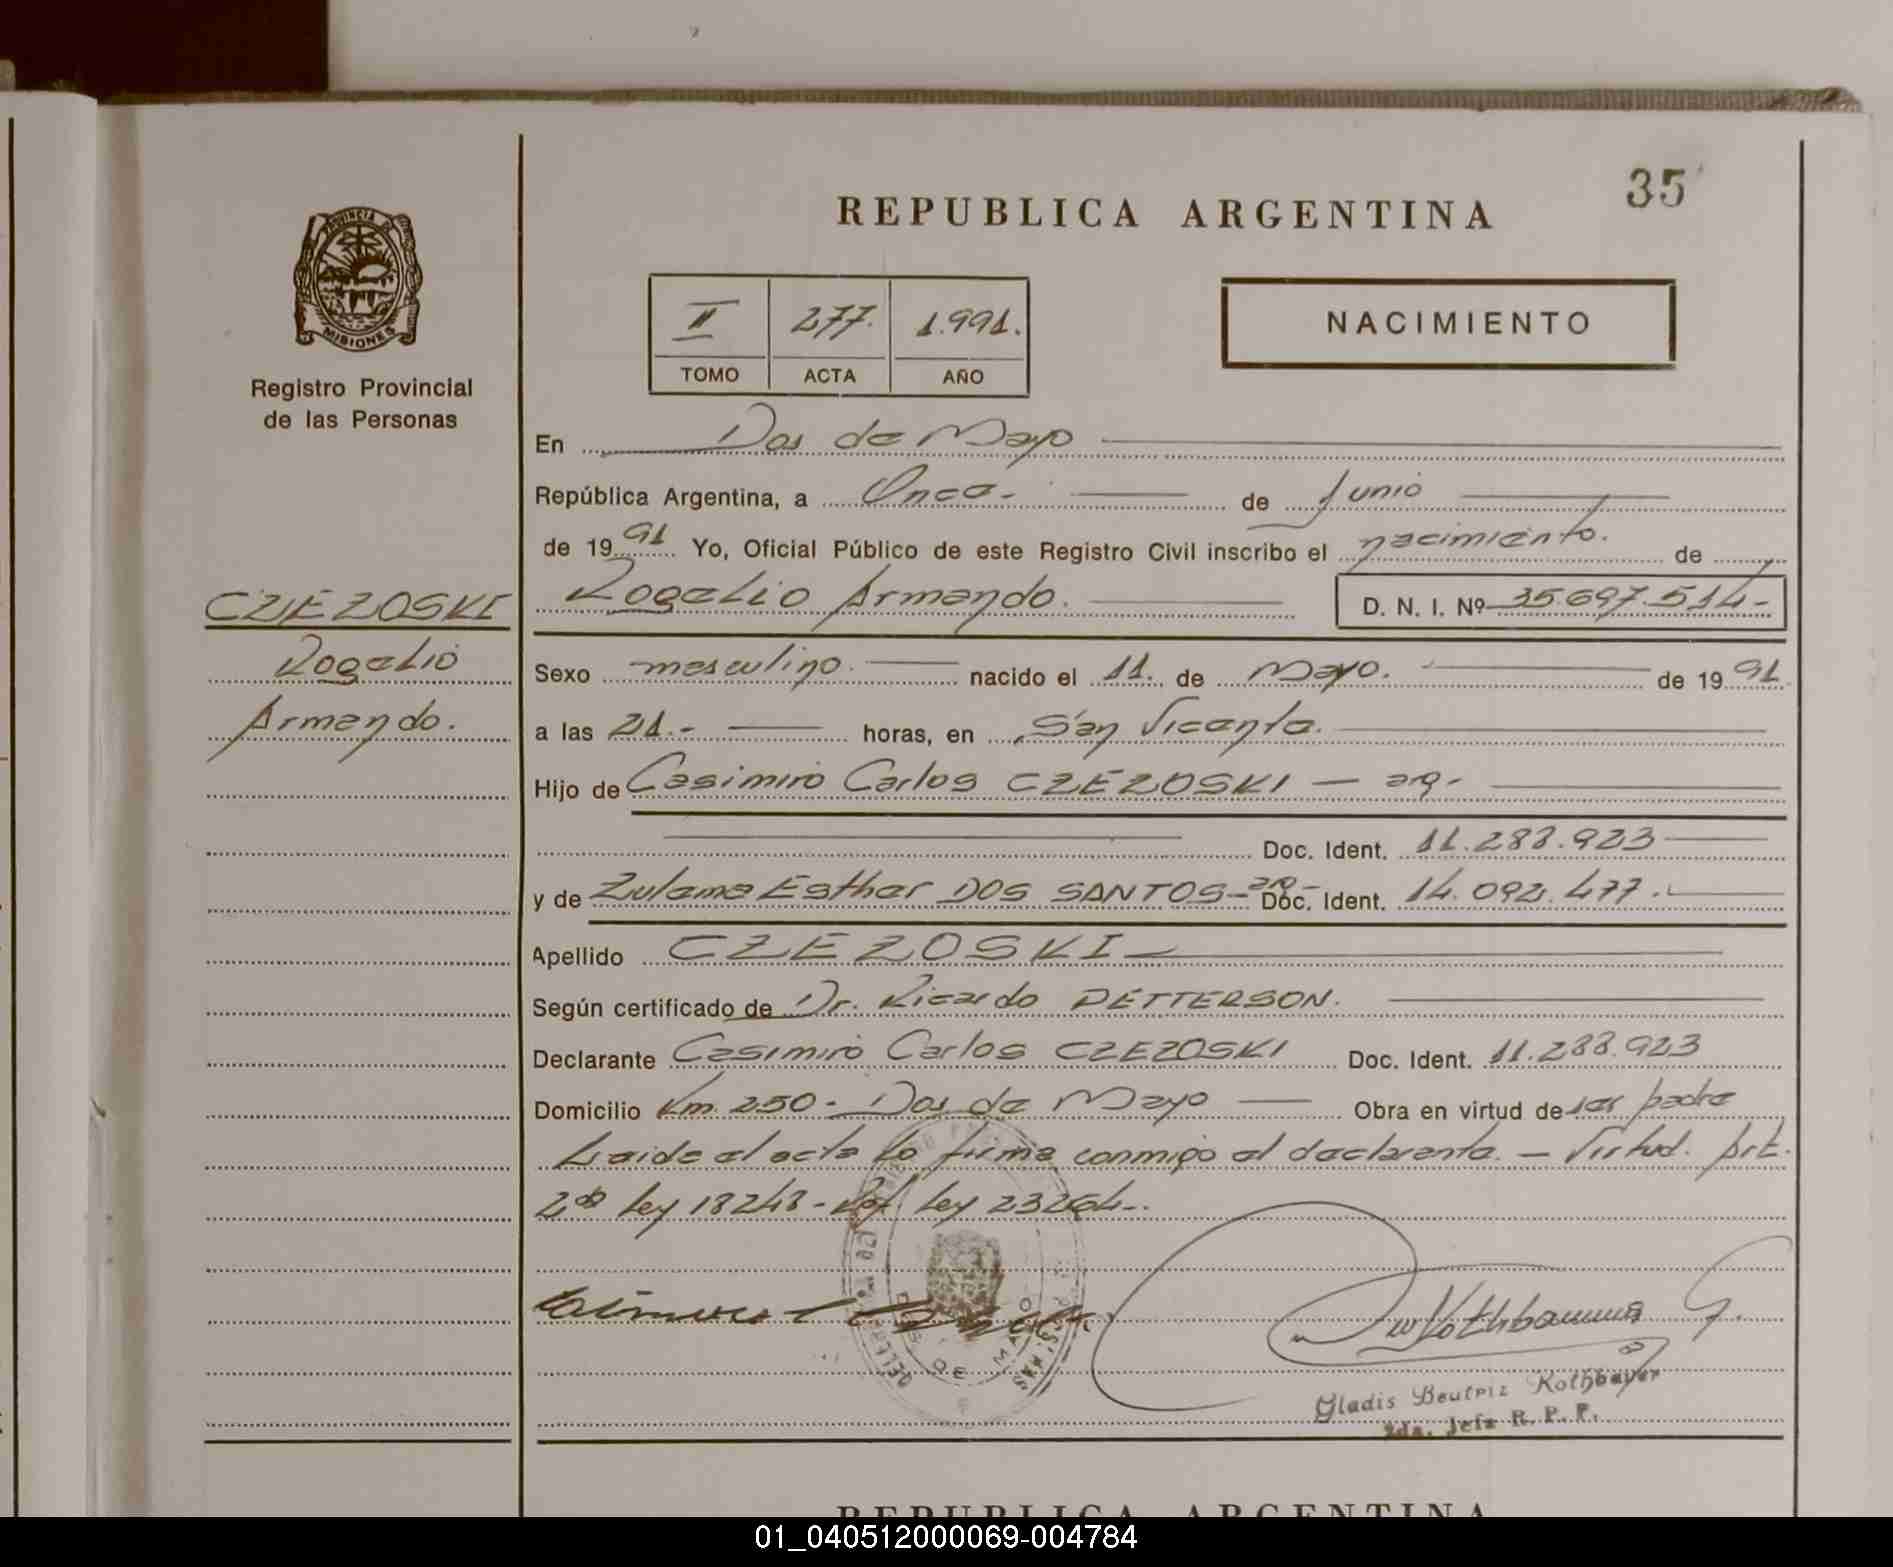 35
REPUBLICA ARGENTINA
PROVINCIA DE
MISIONES
Registro Provincial
de las Personas
II 277. 1.991.
TOMO ACTA AÑO
NACIMIENTO
En Dos de Mayo
República Argentina, a Once.- de Junio
de 1991 Yo, Oficial Público de este Registro Civil inscribo el nacimiento. de
CZEZOSKI
Rogelio Armando. D. N. I. Nº 35.697.514-
Rogelio
Armando.
Sexo masculino. nacido el 11. de Mayo. de 1991
a las 21.- horas, en San Vicente.
Hijo de Casimiro Carlos CZEZOSKI — arg.
Doc. Ident. 11.288.923
y de Zulema Esther DOS SANTOS - arg.- Doc. Ident. 14.092.477.
Apellido CZEZOSKI
Según certificado de Dr. Ricardo PETTERSON.
Declarante Casimiro Carlos CZEZOSKI Doc. Ident. 11.288.923
Domicilio Km. 250 - Dos de Mayo Obra en virtud de ser padre
Leida el acta la firma conmigo el declarante. — Virtud. Art.
2do Ley 18248 - Ref Ley 23264-.
DOS DE MAYO
Gladis Beatriz Rothbauer
2da. Jefa R. P. P.
REPUBLICA ARGENTINA
01_040512000069-004784